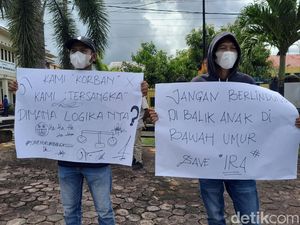 KAMI "KORBAN"
KAMI "TERSANGKA"
DIMANA LOGIKA NYA ?
Ha Ha
JANGAN BERLINDUNG
DI BALIK ANAK DI
BAWAH UMUR
SAVE "IRA"
detikcom